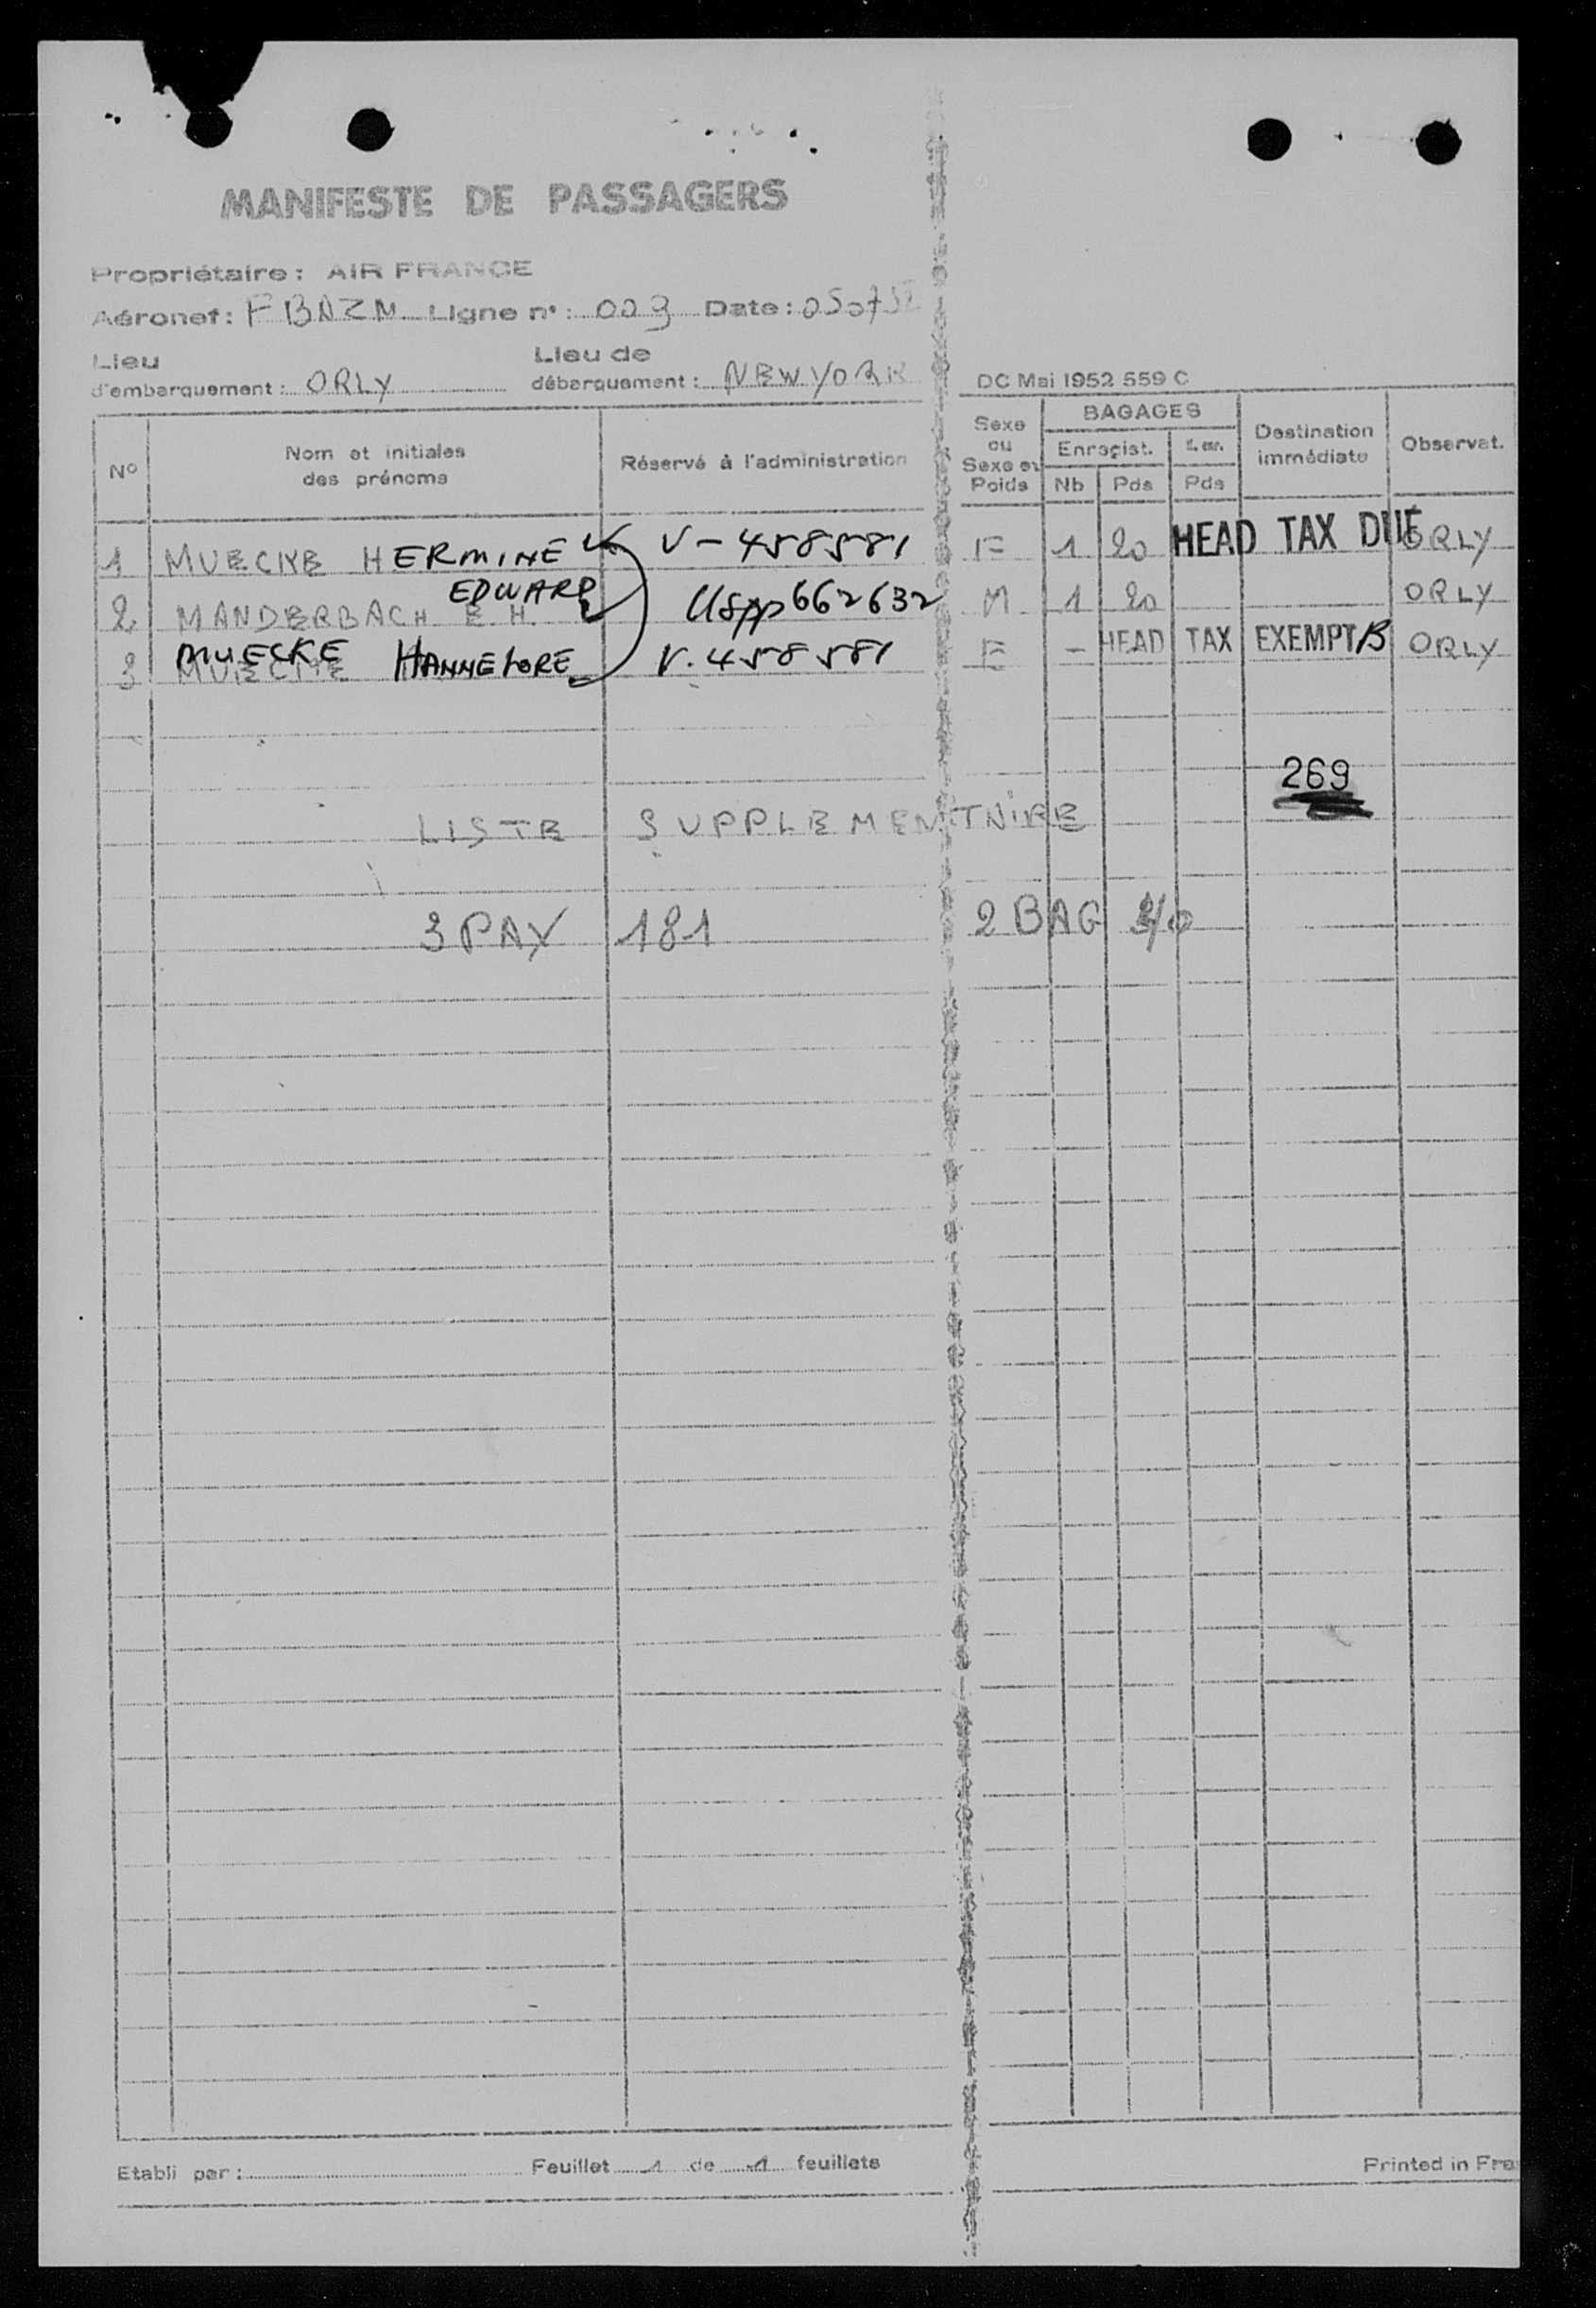 MANIFESTE DE PASSAGERS
Propriétaire : AIR FRANCE
Aéronef : F BNZM Ligne n° : 009 Date : 050752
Lieu d'embarquement : ORLY
Lieu de débarquement : NEW YORK
DC Mai 1952 559 C
N° Nom et initiales des prénoms Réservé à l'administration Sexe ou Sexe et Poids BAGAGES Enregist. Nb Pds Pds Destination immédiate Observat.
1 MUECKE HERMINE V-458581 F 1 20 HEAD TAX DUE ORLY
EDWARD
2 MANDERBACH E.H. USpp 662632 M 1 20 ORLY
3 MUECKE MUECKE HANNELORE V.458581 E - HEAD TAX EXEMPT/B ORLY
269
LISTE SUPPLEMENTAIRE
3 PAX 181 2 BAG
Etabli par : Feuillet 1 de 1 feuillets
Printed in Fra